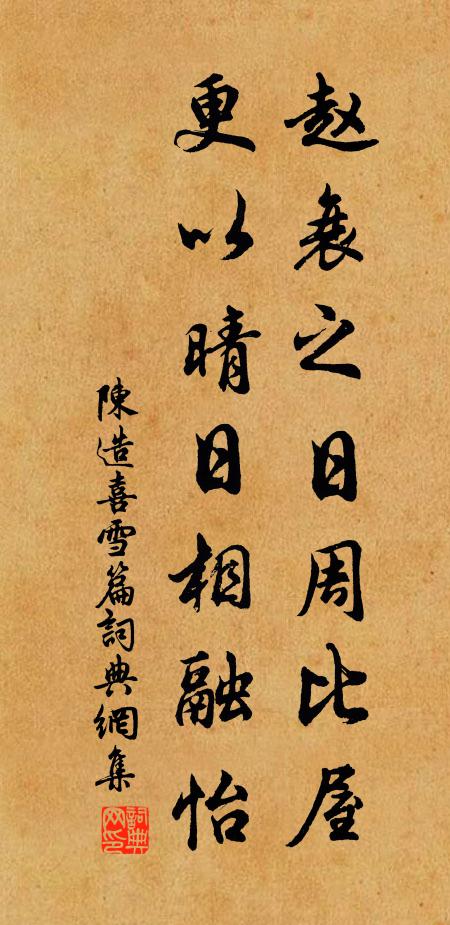 赵衰之日周比屋
更以晴日相融怡
陳造喜雪篇詞典網集
詞典
网印